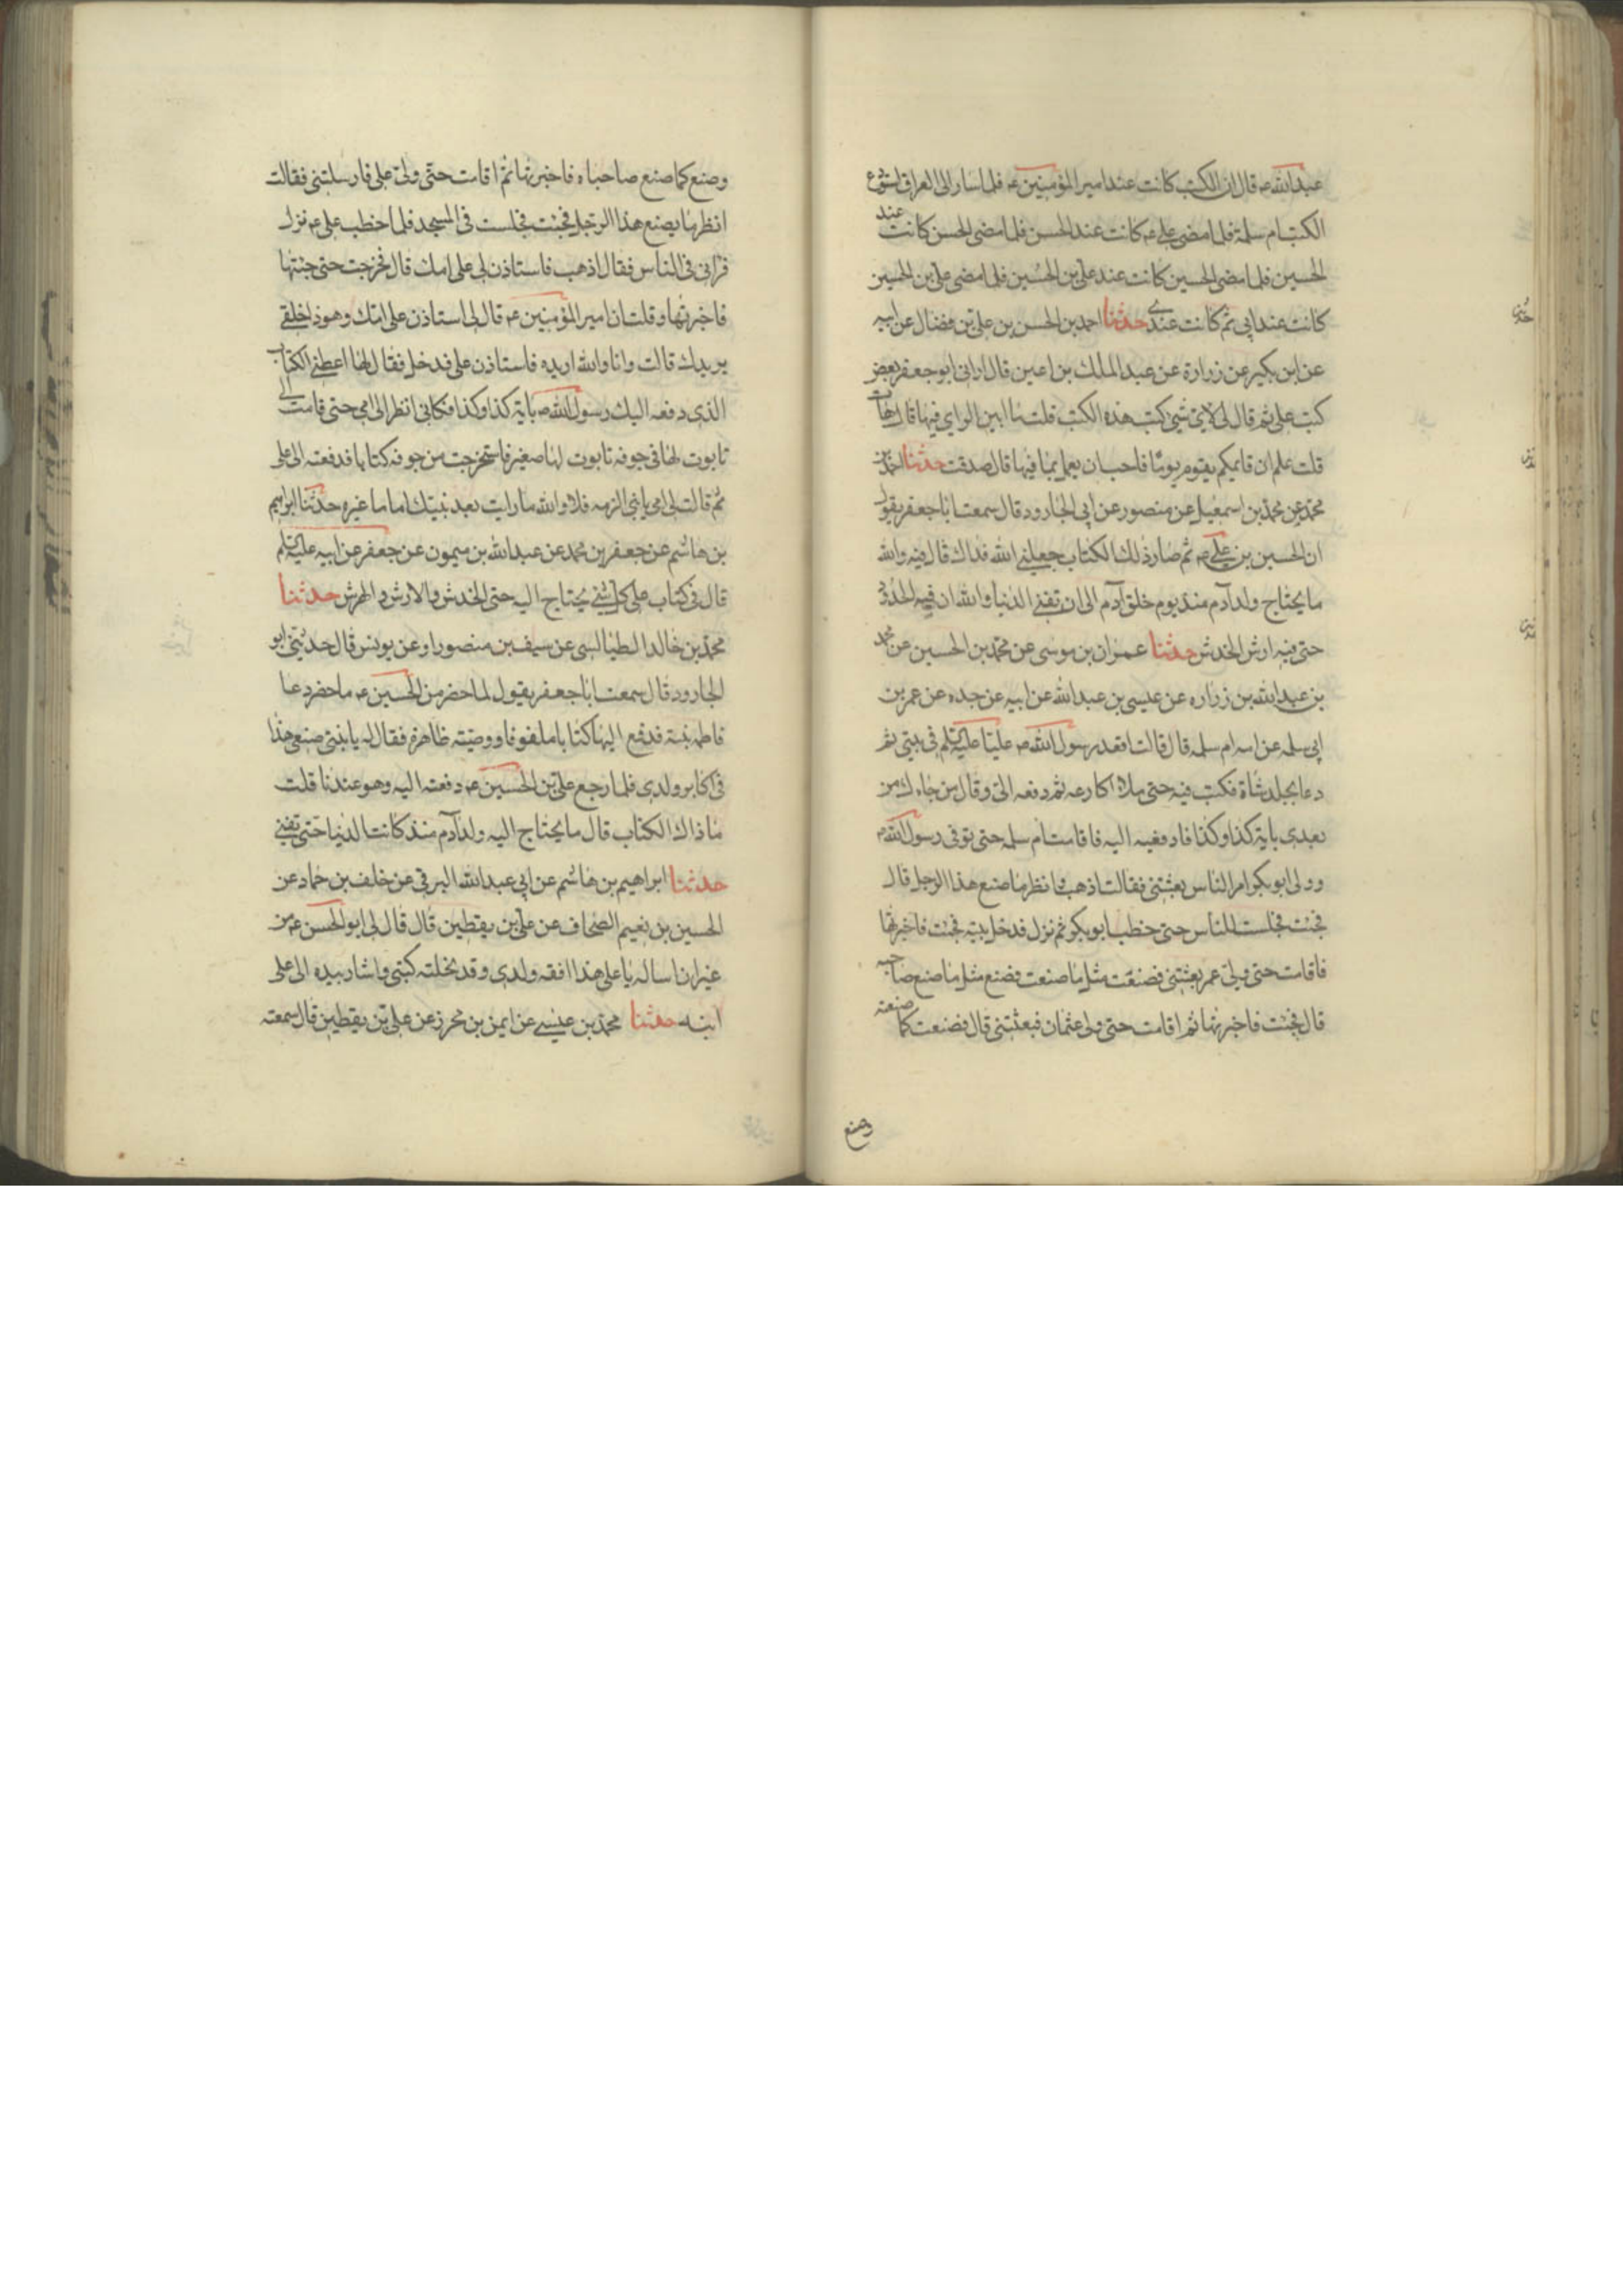 عبدالله عـ قال ان الكتب كانت عند امير المؤمنين عـ فلما سار الى العراق استودع
الكتب ام سلمة فلما مضى علي عـ كانت عند الحسن فلما مضى الحسن كانت عند
الحسين فلما مضى الحسين كانت عند علي بن الحسين فلما مضى علي بن الحسين
كانت عند ابي ثم كانت عندي حدثنا احمد بن الحسن بن علي بن فضال عن ابيه
عن ابن بكير عن زرارة عن عبد الملك بن اعين قال اراني ابو جعفر بعض
كتب علي ثم قال لي لاي شئ كتب هذه الكتب قلت ما ابين الراي فيها قال هات
قلت علم ان قايمكم يقوم يوما فاحب ان يعمل بما فيها قال صدقت حدثنا احمد بن
محمد عن محمد بن اسمعيل عن منصور عن ابي الجارود قال سمعت ابا جعفر يقول
ان الحسين بن علي ثم صار ذلك الكتاب جعلني الله فداك قال فيه والله
ما يحتاج ولد آدم منذ يوم خلق آدم الى ان تفنى الدنيا والله ان فيه الحدود
حتى فيه ارش الخدش حدثنا عمران بن موسى عن محمد بن الحسين عن محمد
بن عبدالله بن زراره عن عيسى بن عبدالله عن ابيه عن جده عن عمر بن
ابي سلمه عن امه ام سلمه قال قالت اقعد رسول الله ص عليا عليه السلم في بيتي ثم
دعا بجلد شاة فكتب فيه حتى ملا اكارعه ثم دفعه الي وقال من جاءك من
بعدي باية كذا وكذا فادفعيه اليه فاقامت ام سلمه حتى توفى رسول الله ص
وولى ابو بكر امر الناس بعثتني فقالت اذهب وانظر ما صنع هذا الرجل قال
فجئت فجلست للناس حتى خطب ابو بكر ثم نزل فدخل بيته فجئت فاخبرتها
فاقامت حتى ولي عمر بعثتني فصنعت مثل ما صنعت فصنع مثل ما صنع صاحبه
قال فجئت فاخبرتها ثم اقامت حتى ولى عثمان فبعثتني قال فصنعت كما صنعته
وصنع
وصنع كما صنع صاحباه فاخبرتها ثم اقامت حتى ولي علي فارسلتني فقالت
انظر ما يصنع هذا الرجل فجئت فجلست في المسجد فلما خطب علي عـ نزل
فراني في الناس فقال اذهب فاستاذن لي على امك قال فخرجت حتى جئتها
فاخبرتها وقلت ان امير المؤمنين عـ قال لي استاذن على امك وهو ذا خلفي
يريدك قالت وانا والله اريده فاستاذن علي فدخل فقال لها اعطني الكتاب
الذي دفعه اليك رسول الله ص باية كذا وكذا فكاني انظر الى امي حتى قامت الى
تابوت لها في جوفه تابوت لها صغير فاستخرجت من جوفه كتابا فدفعته الى علي
ثم قالت لي امي يا بني الزمه فلا والله ما رايت بعد نبيك اماما غيره حدثنا ابراهيم
بن هاشم عن جعفر بن محمد عن عبدالله بن ميمون عن جعفر عن ابيه عليه السلم
قال في كتاب علي كل شئ يحتاج اليه حتى الخدش والارش والهرش حدثنا
محمد بن خالد الطيالسي عن سيف بن منصور او عن يونس قال حدثني ابو
الجارود قال سمعت ابا جعفر يقول لما حضر من الحسين عـ ما حضر دعا
فاطمه بنته فدفع اليها كتابا ملفوفا ووصيته ظاهره فقال له يا بنتي ضعي هذا
في اكابر ولدي فلما رجع علي بن الحسين عـ دفعته اليه وهو عندنا قلت
ما ذاك الكتاب قال ما يحتاج اليه ولد آدم منذ كانت الدنيا حتى تفنى
حدثنا ابراهيم بن هاشم عن ابي عبدالله البرقي عن خلف بن حماد عن
الحسين بن نعيم الصحاف عن علي بن يقطين قال قال لي ابو الحسن عـ من
غير ان اساله يا علي هذا افقه ولدي وقد نحلته كتبي واشار بيده الى علي
ابنه حدثنا محمد بن عيسى عن ايمن بن محرز عن علي بن يقطين قال سمعته